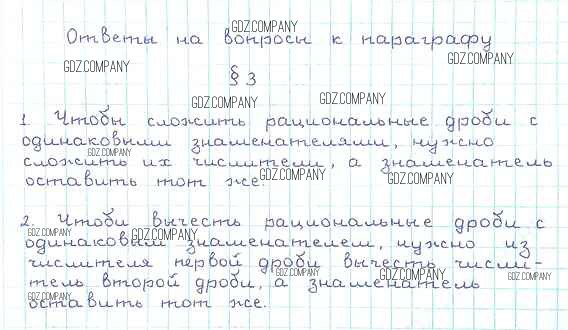 Ответы на вопросы к параграфу
§ 3
1. Чтобы сложить рациональные дроби с
одинаковыми знаменателями, нужно
сложить их числители, а знаменатель
оставить тот же.
2. Чтоби вычесть рациональные дроби с
одинаковым знаменателем, нужно из
числителя первой дроби вычесть числи-
тель второй дроби, а знаменатель
оставить тот же.
GDZ.COMPANY
GDZ.COMPANY
GDZ.COMPANY
GDZ.COMPANY
GDZ.COMPANY
GDZ.COMPANY
GDZ.COMPANY
GDZ.COMPANY
GDZ.COMPANY
GDZ.COMPANY
GDZ.COMPANY
GDZ.COMPANY
GDZ.COMPANY
GDZ.COMPANY